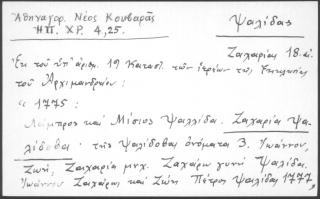 Ἀθηναγόρ. Νέος Κουβαρᾶς
ἨΠ. ΧΡ. 4, 25.
Ψαλίδας
Ζαχαρίας 18.
Ἐκ τοῦ ὑπ' ἀριθ. 19 Κατασ. τῶν ἱερέων τῆς
τοῦ Ἀρχιμανδρίου:
" 1775:
Λάμπρος καὶ Μίσιος Ψαλίδα. Ζαχαρία Ψα-
λίδοβα · τῆς Ψαλίδοβας ὀνόματα 3. Ἰωάννου,
Ζωή, Ζαχαρία μνχ. Ζαχάρω γυνή Ψαλίδα.
Ἰωάννου Ζαχάρως καὶ Ζώη Πέτρος Ψαλίδας 1777,,